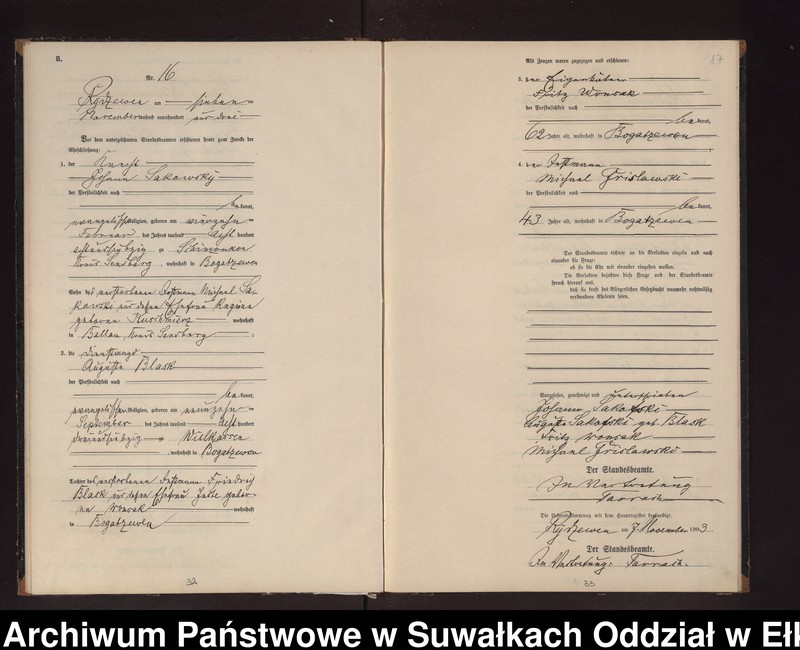 B.
Nr. 16
Rydzewen am sieben
November tausend neunhundert und drei
Vor dem unterzeichneten Standesbeamten erschienen heute zum Zwecke der
Eheschließung:
1. der Knecht
Johann Sakowsky
der Persönlichkeit nach
be kannt,
evangelischer Religion, geboren am vierzehn
Februar des Jahres tausend acht hundert
achtundsiebzig zu Schimonken
Kreis Sensburg, wohnhaft in Bogatzewen
Sohn des verstorbenen Instmann Michael Sa-
kowski und dessen Ehefrau Regine
geborene wohnhaft
in Kreis Sensburg ;
2. die Dienstmagd
Auguste Blask
der Persönlichkeit nach
be kannt,
evangelischer Religion, geboren am neunzehn
September des Jahres tausend acht hundert
dreiundsiebzig zu Wilkassen
, wohnhaft in Bogatzewen
Tochter des verstorbenen Instmann Friedrich
Blask und dessen Ehefrau gebore-
ne Wonsak wohnhaft
in Bogatzewen
32
Als Zeugen waren zugezogen und erschienen:
17
3. der Eigenkätner
Fritz Wonsak
der Persönlichkeit nach
be kannt,
62 Jahre alt, wohnhaft in Bogatzewen
4. der Instmann
Michael Grislawski
der Persönlichkeit nach
be kannt,
43 Jahre alt, wohnhaft in Bogatzewen
Der Standesbeamte richtete an die Verlobten einzeln und nach
einander die Frage:
ob sie die Ehe mit einander eingehen wollen.
Die Verlobten bejahten diese Frage und der Standesbeamte
sprach hierauf aus,
daß sie kraft des Bürgerlichen Gesetzbuchs nunmehr rechtmäßig
verbundene Eheleute seien.
Vorgelesen, genehmigt und unterschrieben
Johann Sakofski
Auguste Sakofski geb. Blask
Fritz Wonsak
Michael Grislawski
Der Standesbeamte.
In Vertretung
Die Uebereinstimmung mit dem Hauptregister beglaubigt.
Rydzewen am 7. November 1903
Der Standesbeamte.
In Vertretung:
33
Archiwum Państwowe w Suwałkach Oddział w Ełk